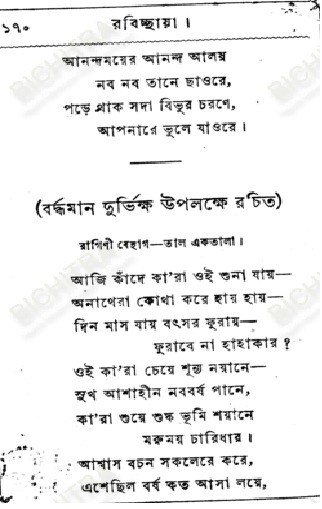 ১৭০ রবিচ্ছায়া।
আনন্দময়ের আনন্দ আলয়
নব নব তানে ছাওরে,
পড়ে থাক সদা বিভুর চরণে,
আপনারে ভুলে যাওরে।
(বর্দ্ধমান দুর্ভিক্ষ উপলক্ষে রচিত)
রাগিণী বেহাগ—তাল একতালা।
আজি কাঁদে কা'রা ওই শুনা যায়—
অনাথেরা কোথা করে হায় হায়—
দিন মাস যায় বৎসর ফুরায়—
ফুরাবে না হাহাকার?
ওই কা'রা চেয়ে শূন্য নয়ানে—
সুখ আশাহীন নববর্ষ পানে,
কা'রা শুয়ে শুষ্ক ভূমি শয়ানে
মরুময় চারিধার।
আশ্বাস বচন সকলেরে কয়ে,
এসেছিল বর্ষ কত আশা লয়ে,